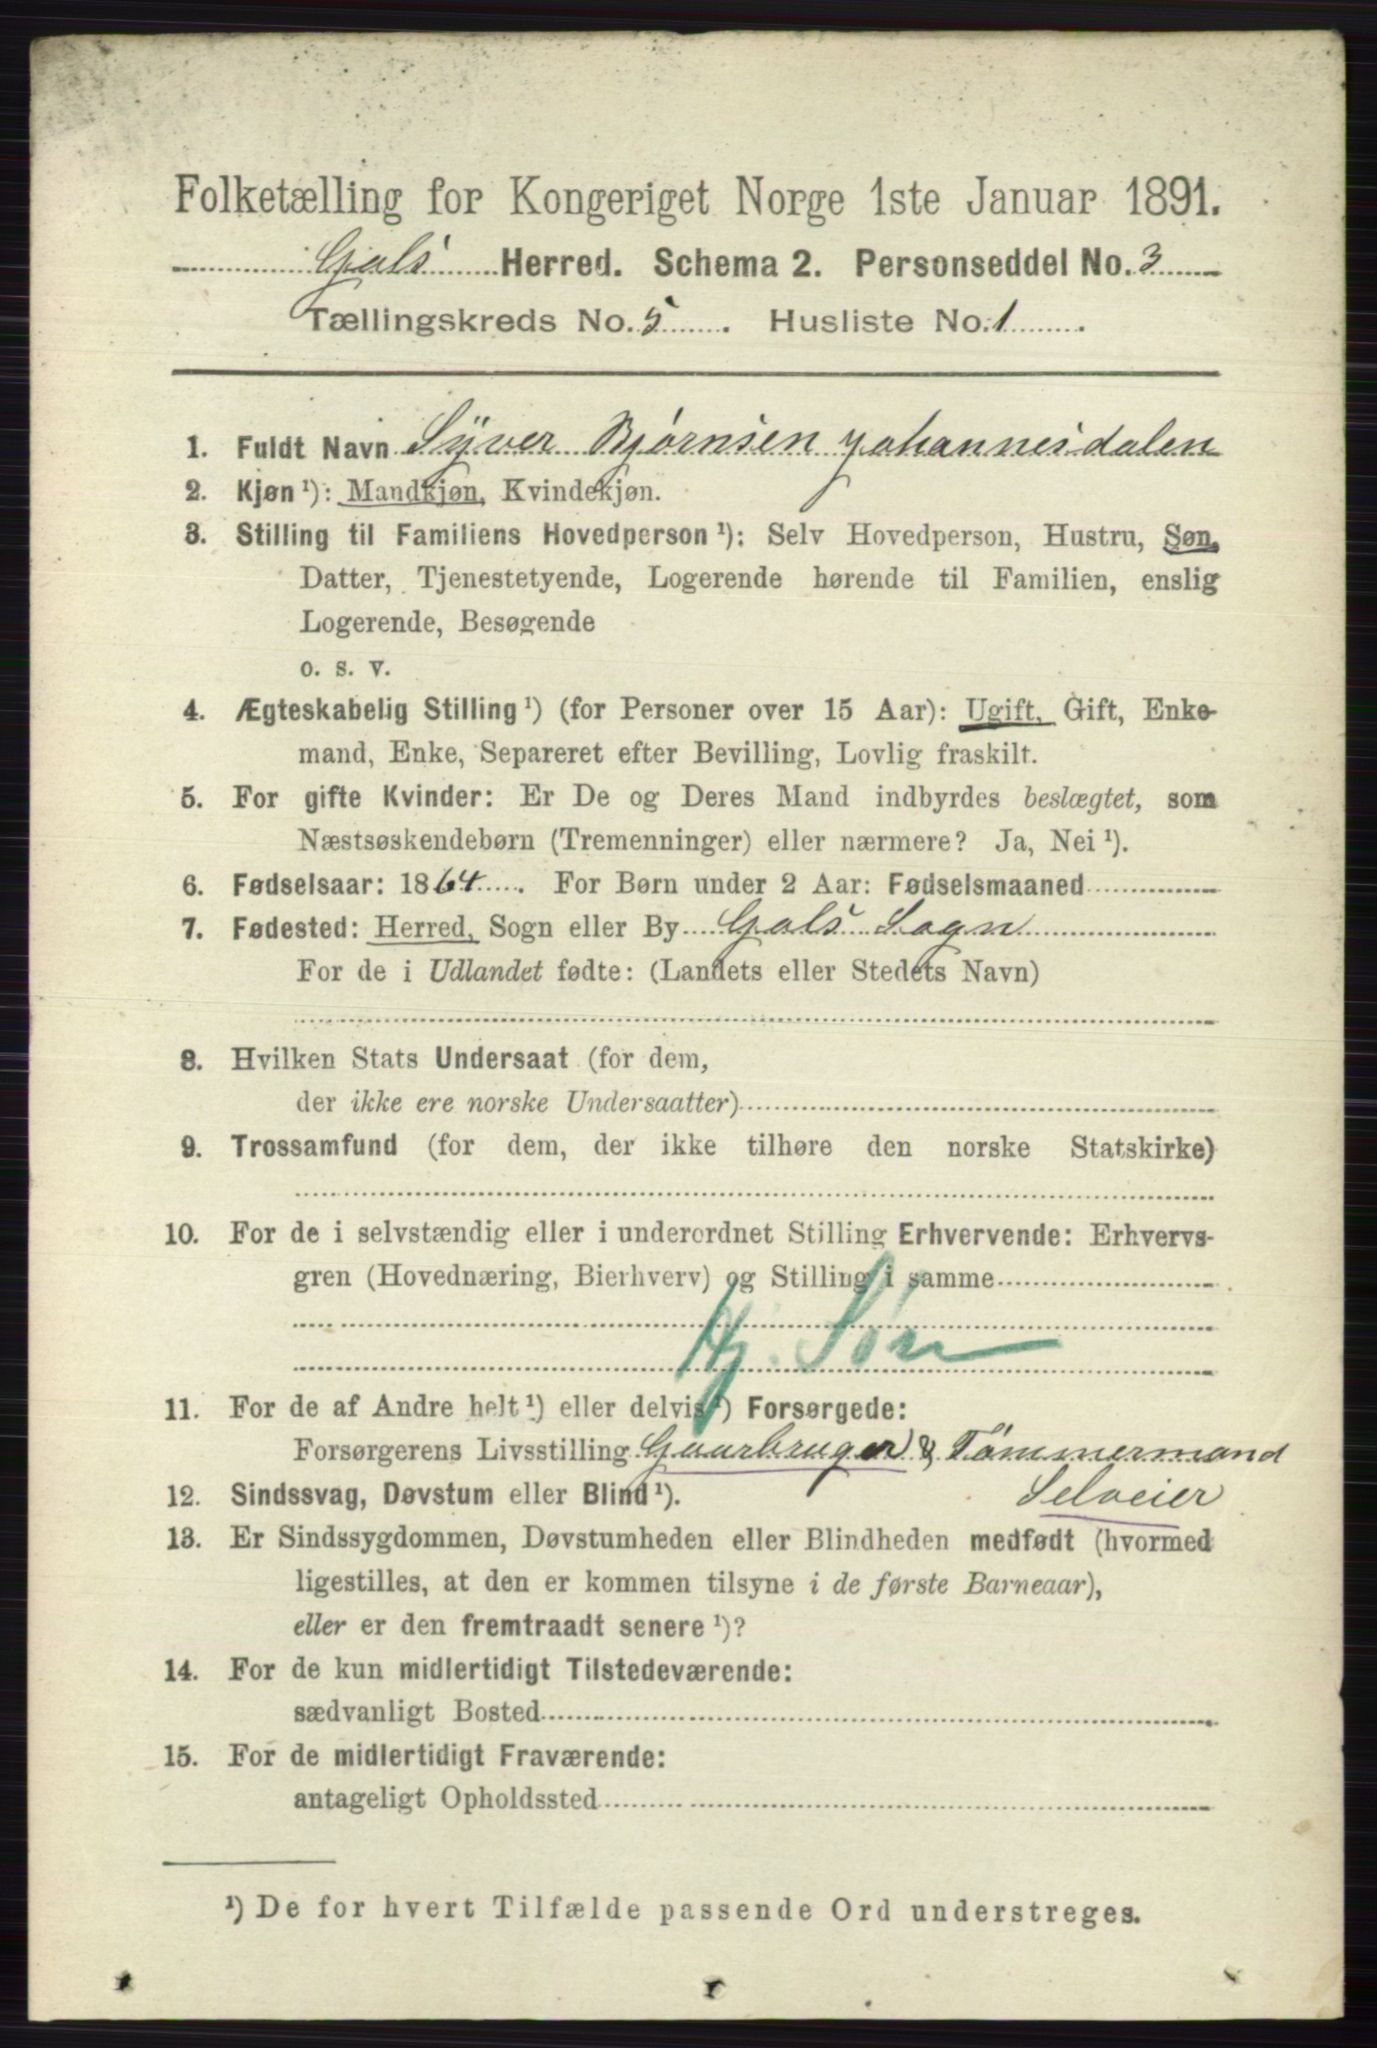 Folketælling for Kongeriget Norge 1ste Januar 1891.
Gols Herred. Schema 2. Personseddel No. 3
Tællingskreds No. 5. Husliste No. 1.
1. Fuldt Navn Syver Bjørnsen Johannesdalen
2. Kjøn¹): Mandkjøn, Kvindekjøn.
3. Stilling til Familiens Hovedperson¹): Selv Hovedperson, Hustru, Søn,
Datter, Tjenestetyende, Logerende hørende til Familien, enslig
Logerende, Besøgende
o. s. v.
4. Ægteskabelig Stilling¹) (for Personer over 15 Aar): Ugift, Gift, Enke-
mand, Enke, Separeret efter Bevilling, Lovlig fraskilt.
5. For gifte Kvinder: Er De og Deres Mand indbyrdes beslægtet, som
Næstsøskendebørn (Tremenninger) eller nærmere? Ja, Nei¹).
6. Fødselsaar: 1864. For Børn under 2 Aar: Fødselsmaaned
7. Fødested: Herred, Sogn eller By Gols Sogn
For de i Udlandet fødte: (Landets eller Stedets Navn)
8. Hvilken Stats Undersaat (for dem,
der ikke ere norske Undersaatter)
9. Trossamfund (for dem, der ikke tilhøre den norske Statskirke)
10. For de i selvstændig eller i underordnet Stilling Erhvervende: Erhvervs-
gren (Hovednæring, Bierhverv) og Stilling i samme
Hj. Søn
11. For de af Andre helt¹) eller delvis¹) Forsørgede:
Forsørgerens Livsstilling Gaarbruger & Tømmermand
Selveier
12. Sindssvag, Døvstum eller Blind¹).
13. Er Sindssygdommen, Døvstumheden eller Blindheden medfødt (hvormed
ligestilles, at den er kommen tilsyne i de første Barneaar),
eller er den fremtraadt senere¹)?
14. For de kun midlertidigt Tilstedeværende:
sædvanligt Bosted
15. For de midlertidigt Fraværende:
antageligt Opholdssted
¹) De for hvert Tilfælde passende Ord understreges.